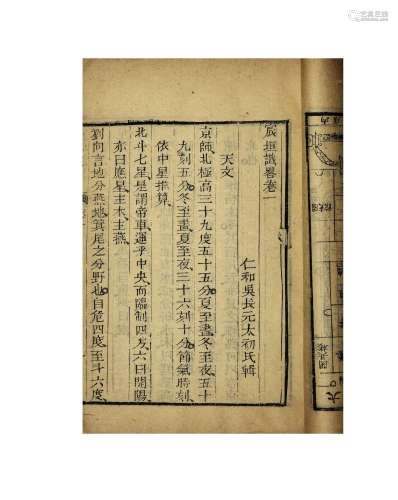 宸垣識畧卷一
仁和吳長元太初氏輯
天文
京師北極高三十九度五十五分夏至晝冬至夜五十
九刻五分冬至晝夏至夜三十六刻十分節氣時刻
依中星推算
北斗七星是謂帝車運乎中央而臨制四方六曰開陽
亦曰應星主木主燕
劉向言地分燕地箕尾之分野也自危四度至斗六度